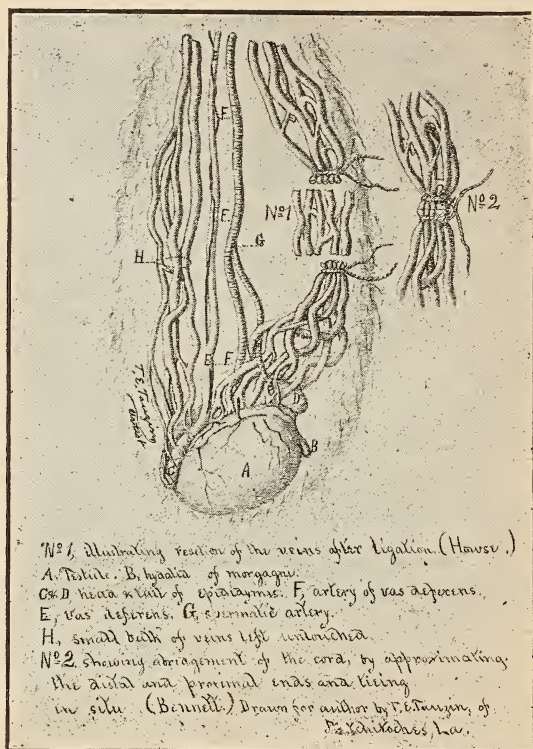 P
F
Nº1
Nº2
E
G
H
E F
T.E. Tauzin
Artist
B
A
Nº1, illustrating resection of the veins after ligation. (Howse.)
A, Testicle. B, hydatid of morgagni.
C & D head & tail of epididymis. F, artery of vas deferens.
E, vas deferens. G, spermatic artery.
H, small bulk of veins left untouched.
Nº2 showing abridgement of the cord, by approximating
the distal and proximal ends and tieing
in situ. (Bennett.) Drawn for author by T.E. Tauzin, of
Natchitoches, La.